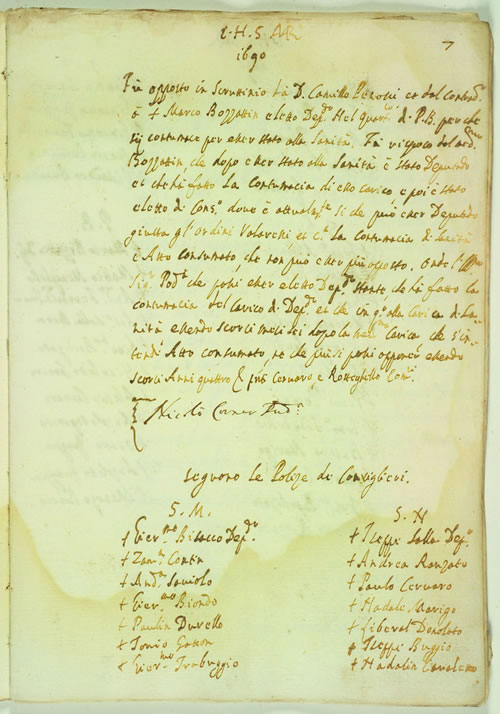 I. H. S. AR
7
1690
Fù opposto in Scruttinio da D. Camillo et dal Contrad.
à + Marco Bozzattin eletto Dep.to Nel quar. di P.B. perche
sij contumace per esser stato alla Sanità. Fù risposto dal med.mo
Bozzattin, che dopo esser stato alla Sanità è stato Deputado
et che hà fatto la Contumacia di esso Carico e poi è stato
eletto di Cons.o dove è attualm.te si che può esser Deputado
giusta gl'ordini Valarchi, et c.a la Contumacia di Sanità
è Atto Consumato, che non può esser più opposto. Onde l'Ill.mo
Sig.r Pod.à che possi esser eletto Dep.to stante, che hà fatto la
contumacia del Carico di Dep.to et che in q.to alla Carica di Sa-
nità essendo scorsi molti dopo la Carica, che s'in-
tendi Atto Consumato, ne che più si possi opponer essendo
scorsi Anni quattro Cervaro, e Rotteghello Cons.
Nicolò Corner Pod.à
Seguono le Polize di Consiglieri.
S. M.
+ Gier.mo Bisacco Dep.to
+ Zan Contin
+ And.a Saviolo
+ Gier.mo Biondo
+ Paulin Durello
+ Tonio Gasson
+ Gier.mo Trabuggio
S. N
+ Iseppi Salla Dep.to
+ Andrea Ranzato
+ Paulo Cervaro
+ Nadale Marigo
+ Liberal Donolato
+ Iseppi Buggio
+ Nadalin Cavaletto